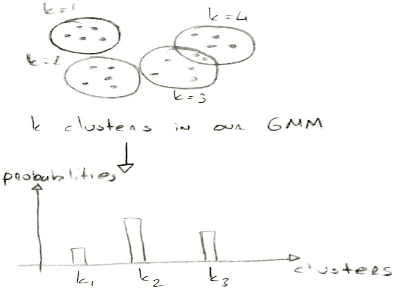 k=1
k=4
k=2
k=3
k clusters in our GMM
probabilities
k₁ k₂ k₃
clusters